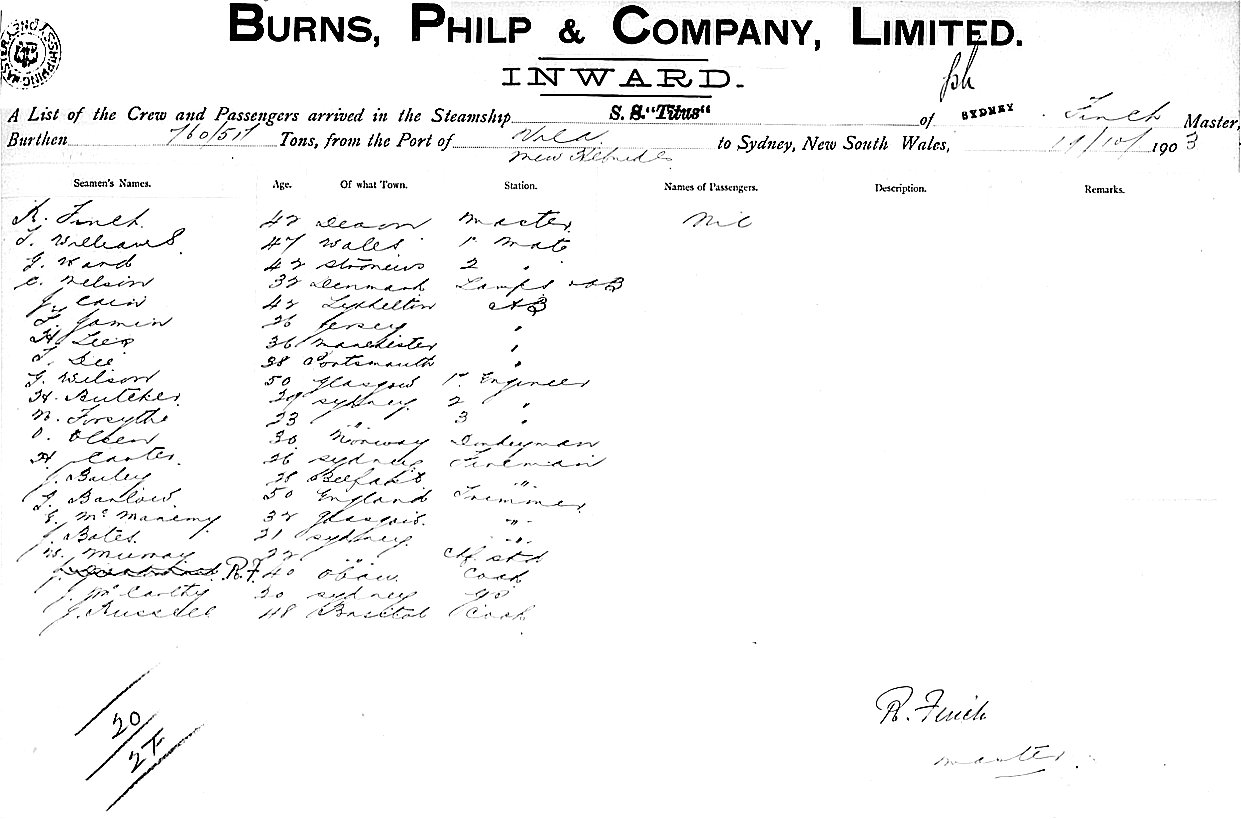 BURNS, PHILP & COMPANY, LIMITED.
INWARD.
A List of the Crew and Passengers arrived in the Steamship S. S. "Titus" of SYDNEY Finch Master,
Burthen 760/511 Tons, from the Port of Vila to Sydney, New South Wales, 19/10/ 1903
New Hebrides
Seamen's Names. Age. Of what Town. Station. Names of Passengers. Description. Remarks.
R. Finch 42 Devon Master Nil
T. Williams 47 Wales 1st Mate
J. Ward 42 2 "
C. Nelson 32 Denmark Lamps & AB
J. Cain 42 Lyttelton AB
Jamin 26 Jersey "
H. Lee 36 Manchester "
38 Portsmouth "
J. Wilson 50 Glasgow 1st Engineer
H. Butcher 29 Sydney 2 "
N. Forsythe 23 " 3 "
O. Olsen 30 Norway Donkeyman
H. Carter 26 Sydney Fireman
J. Bailey 28 Belfast "
J. Barlow 50 England Trimmer
Mc Manemy 32 Glasgow "
J. Bates 21 Sydney "
W. Murray 22 " Chf. Std
R.F. 40 Oban Cook
J. McCarthy 20 Sydney
J. Russell 48 Bristol Cook
20
R. Finch
Master